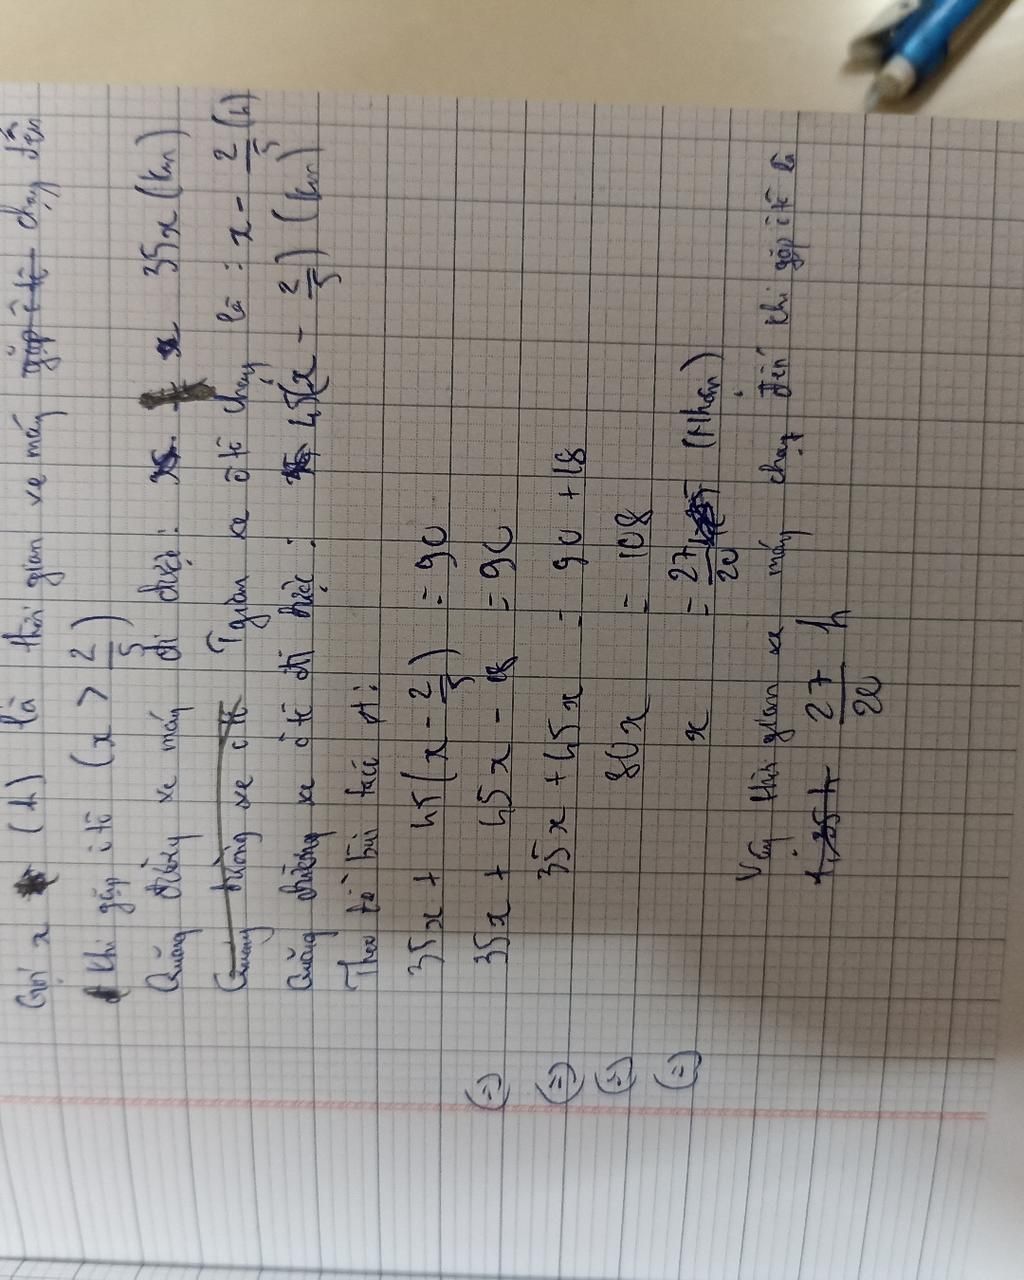 Gọi x (h) là thời gian xe máy gặp ô tô chạy đến
khi gặp ô tô (x > 2/5)
Quãng đường xe máy đi được: 35x (km)
Quãng đường xe ô tô Tgian xe ô tô chạy là : x - 2/5 (h)
Quãng đường xe ô tô đi được : 45(x - 2/5) (km)
Theo đề bài ta có pt:
35x + 45(x - 2/5) = 90
(=) 35x + 45x - 18 = 90
(=) 35x + 45x = 90 + 18
(=) 80x = 108
(=) x = 27/20 (Nhận)
Vậy thời gian xe máy chạy đến khi gặp ô tô là
1,35 h 27/20 h